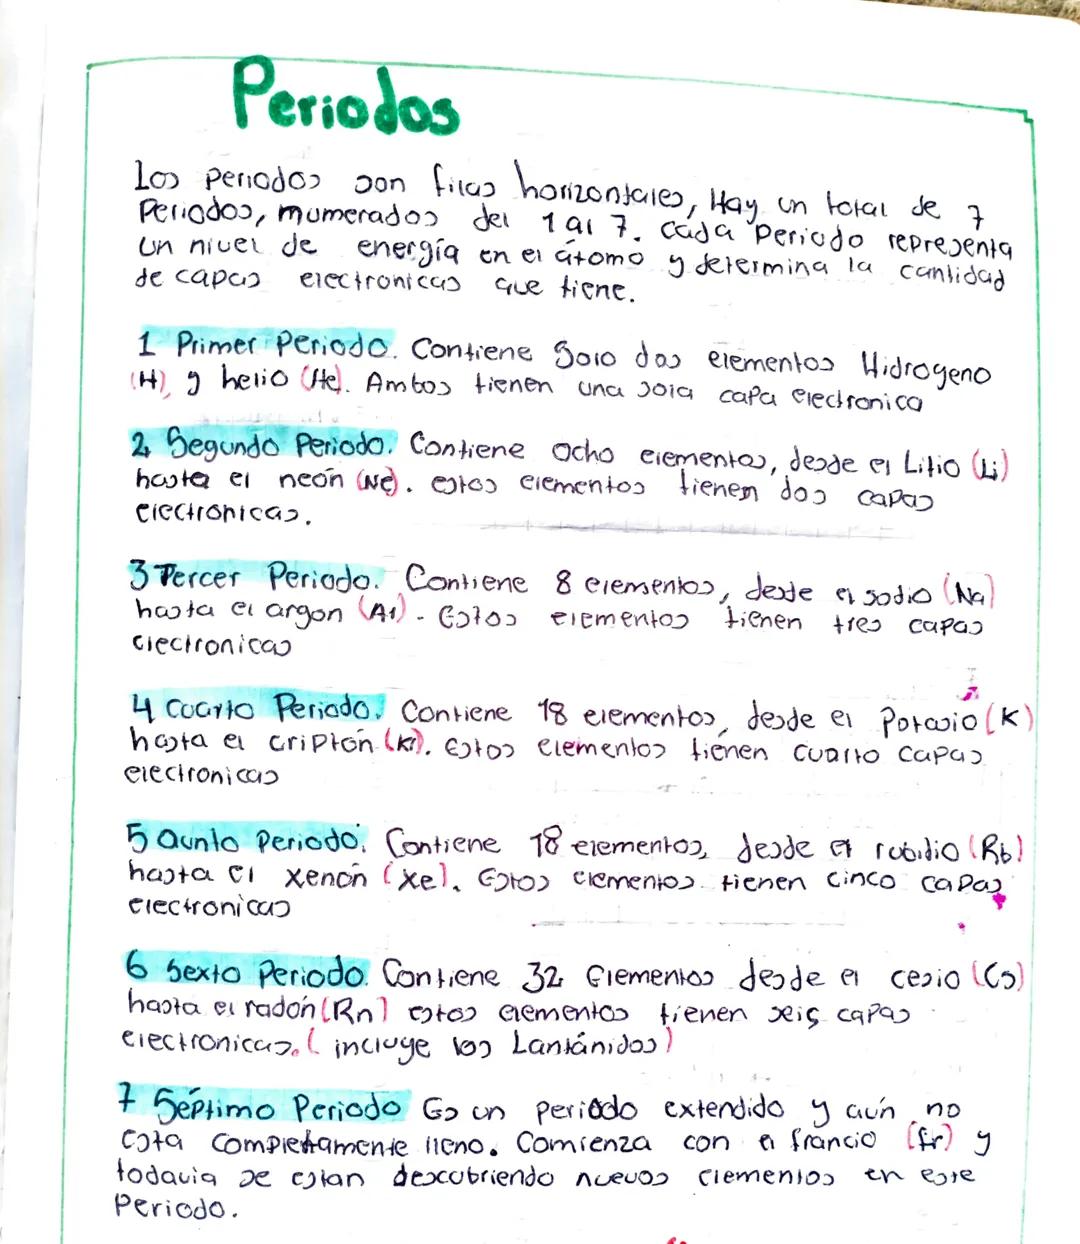 Periodos
Los periodos son filas horizontales, Hay un total de 7
Periodos, numerados del 1 al 7. cada Periodo representa
un nivel de energía en el átomo y determina la cantidad
de capas electronicas que tiene.
1 Primer Periodo. Contiene Solo dos elementos Hidrogeno
(H), y helio (He). Ambos tienen una sola capa electronica
2 Segundo Periodo. Contiene Ocho elementos, desde el Litio (Li)
hasta el neón (Ne). estos elementos tienen dos capas
electronicas.
3 Tercer Periodo. Contiene 8 elementos, desde el sodio (Na)
hasta el argon (Ar). Estos elementos tienen tres capas
electronicas
4 Cuarto Periodo. Contiene 18 elementos, desde el Potasio (K)
hasta el criptón (Kr). Estos elementos tienen cuatro capas
electronicas
5 Qunto Periodo. Contiene 18 elementos, desde el rubidio (Rb)
hasta el xenón (Xe). Estos elementos tienen cinco capas
electronicas
6 Sexto Periodo. Contiene 32 Elementos desde el cesio (Cs)
hasta el radón (Rn) estos elementos tienen seis capas
electronicas. (incluye los Lantánidos)
7 Séptimo Periodo Es un periodo extendido y aún no
esta completamente lleno. Comienza con el francio (fr) y
todavia se estan descubriendo nuevos elementos en este
Periodo.